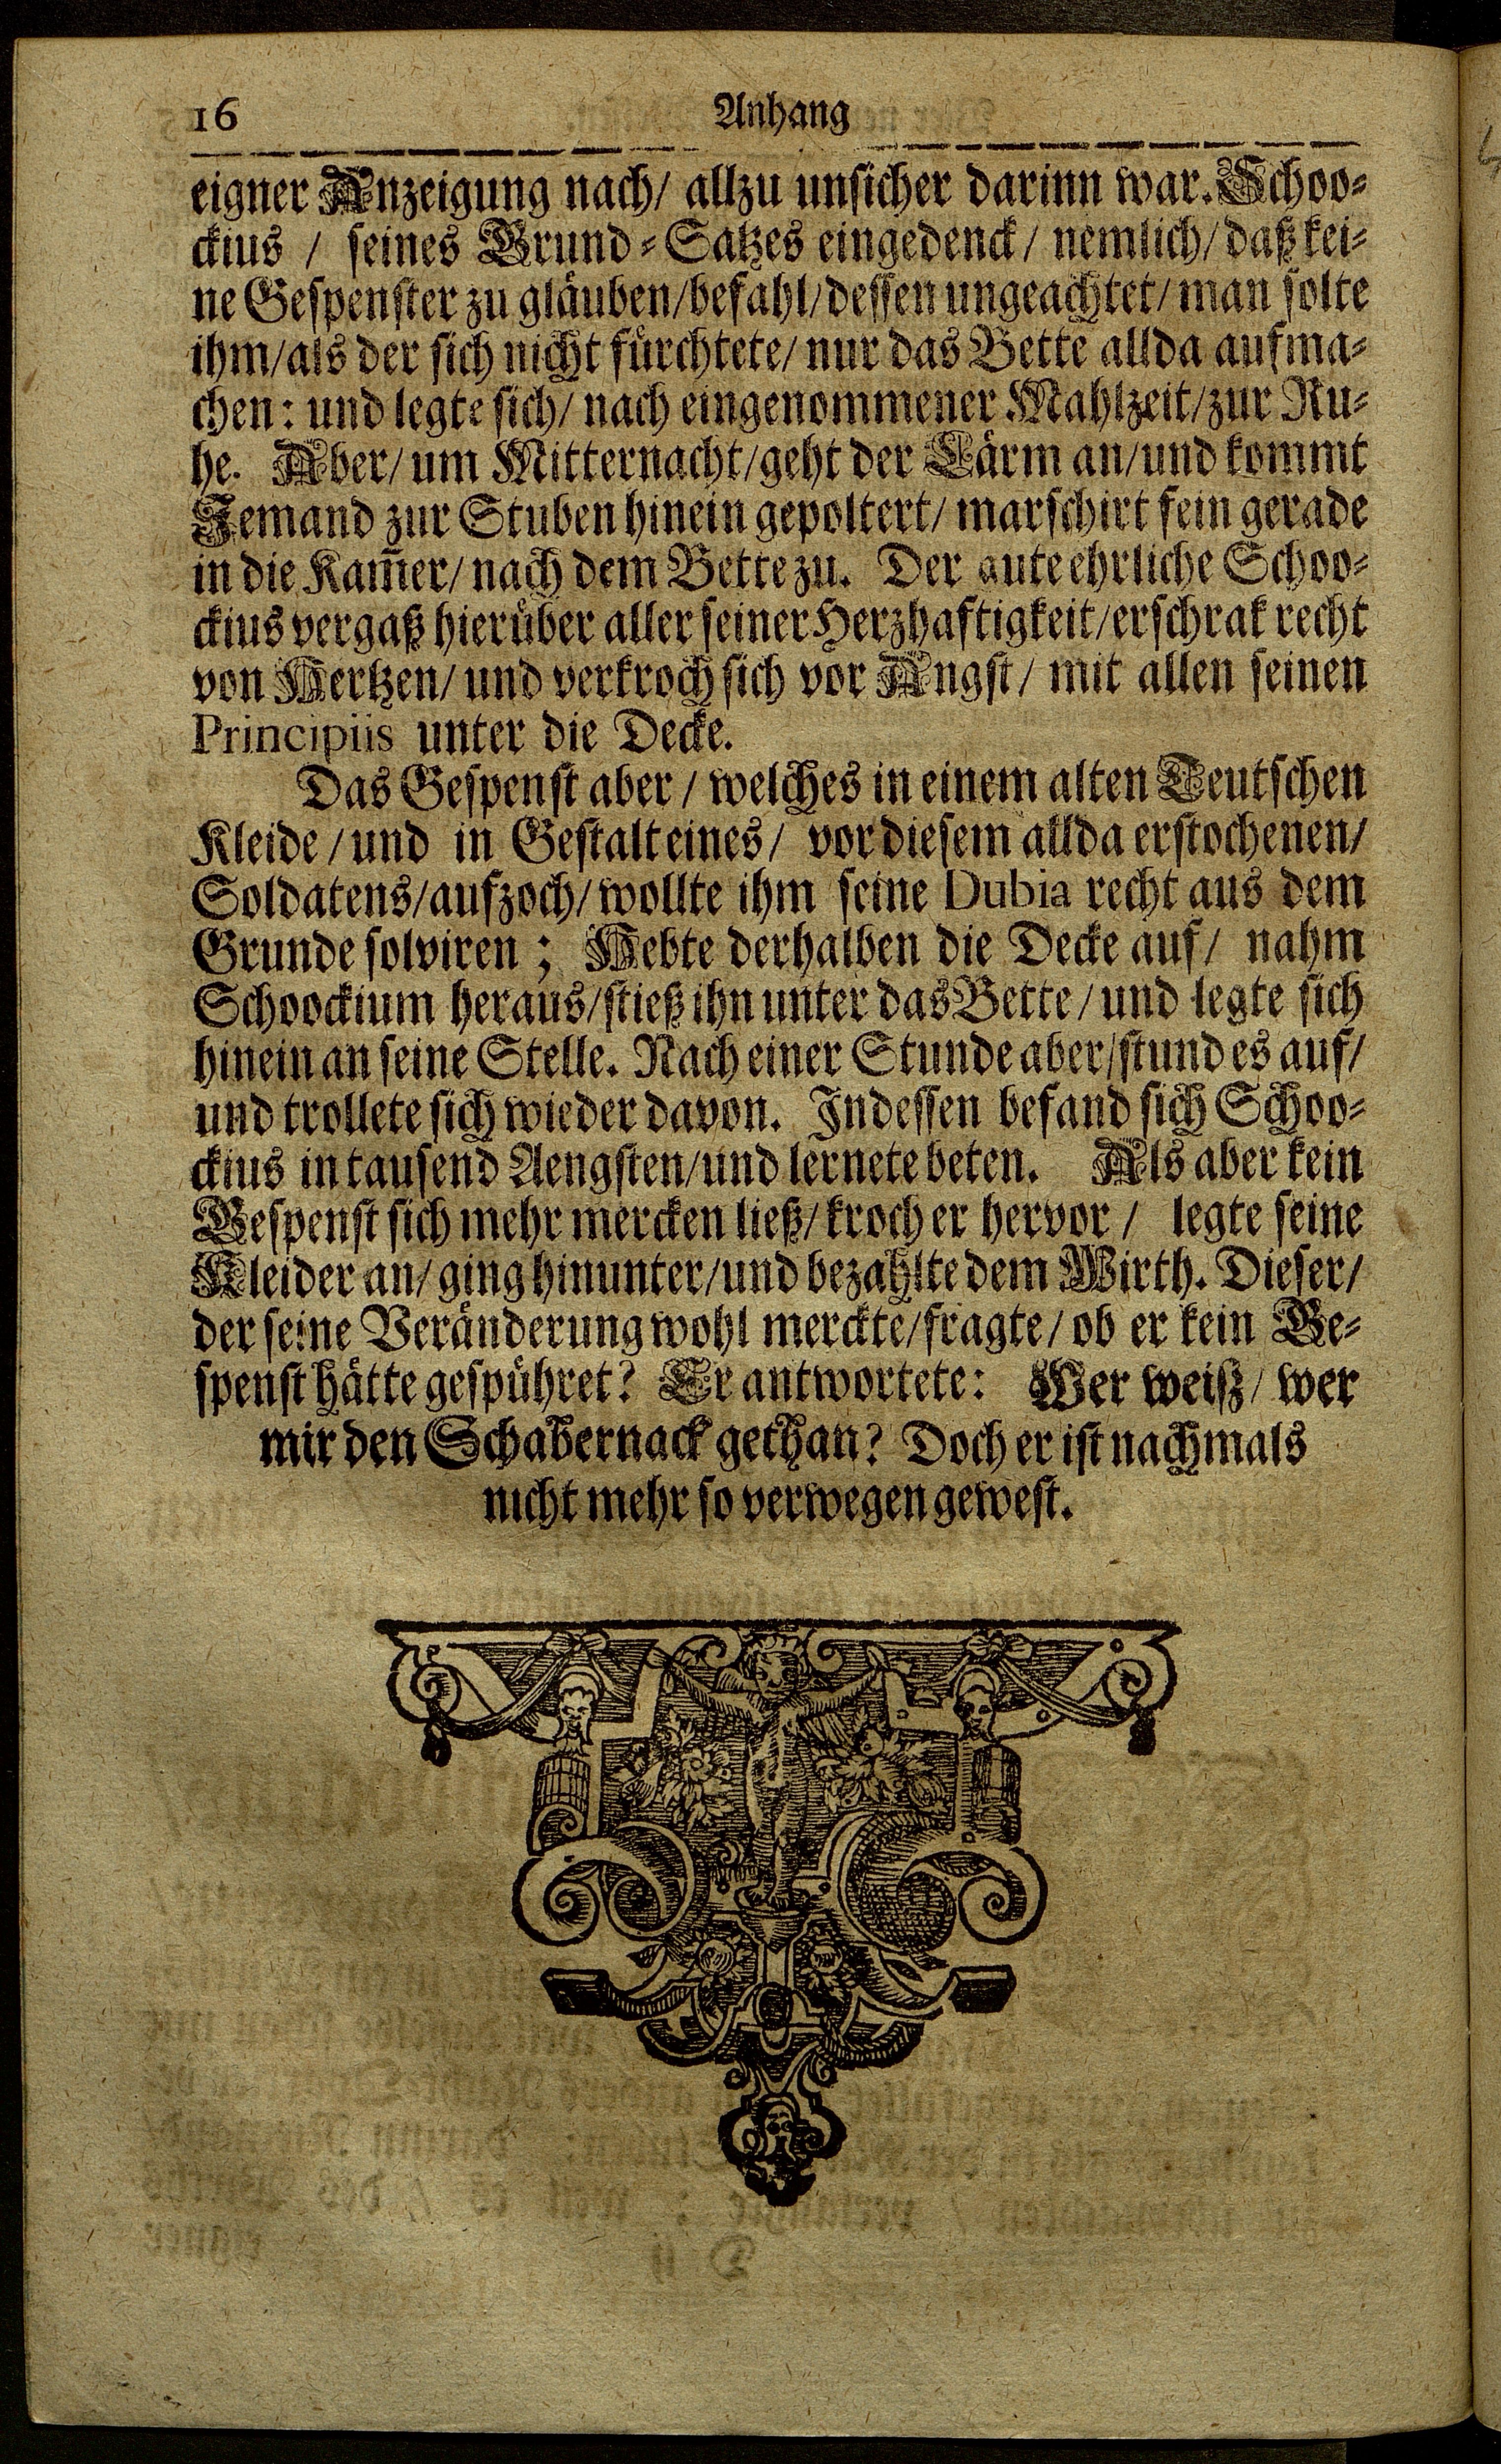 16 Anhang
eigner Anzeigung nach/ allzu unsicher darinn war. Schoo-
ckius / seines Grund-Satzes eingedenck/ nemlich/ daß kei-
ne Gespenster zu gläuben/ befahl/ dessen ungeachtet/ man solte
ihm/ als der sich nicht fürchtete/ nur das Bette allda aufma-
chen: und legte sich/ nach eingenommener Mahlzeit/ zur Ru-
he. Aber/ um Mitternacht/ geht der Lärm an/ und kommt
Jemand zur Stuben hinein gepoltert/ marschirt fein gerade
in die Kam̃er/ nach dem Bette zu. Der gute ehrliche Schoo-
ckius vergaß hierüber aller seiner Herzhaftigkeit/ erschrak recht
von Hertzen/ und verkroch sich vor Angst/ mit allen seinen
Principiis unter die Decke.
Das Gespenst aber / welches in einem alten Teutschen
Kleide / und in Gestalt eines/ vor diesem allda erstochenen/
Soldatens/ aufzoch/ wollte ihm seine Dubia recht aus dem
Grunde solviren; Hebte derhalben die Decke auf/ nahm
Schoockium heraus/ stieß ihn unter das Bette / und legte sich
hinein an seine Stelle. Nach einer Stunde aber/ stund es auf/
und trollete sich wieder davon. Indessen befand sich Schoo-
ckius in tausend Aengsten/ und lernete beten. Als aber kein
Gespenst sich mehr mercken ließ/ kroch er hervor / legte seine
Kleider an/ ging hinunter/ und bezahlte dem Wirth. Dieser/
der seine Veränderung wohl merckte/ fragte/ ob er kein Ge-
spenst hätte gespühret? Er antwortete: Wer weiß/ wer
mir den Schabernack gethan? Doch er ist nachmals
nicht mehr so verwegen gewest.